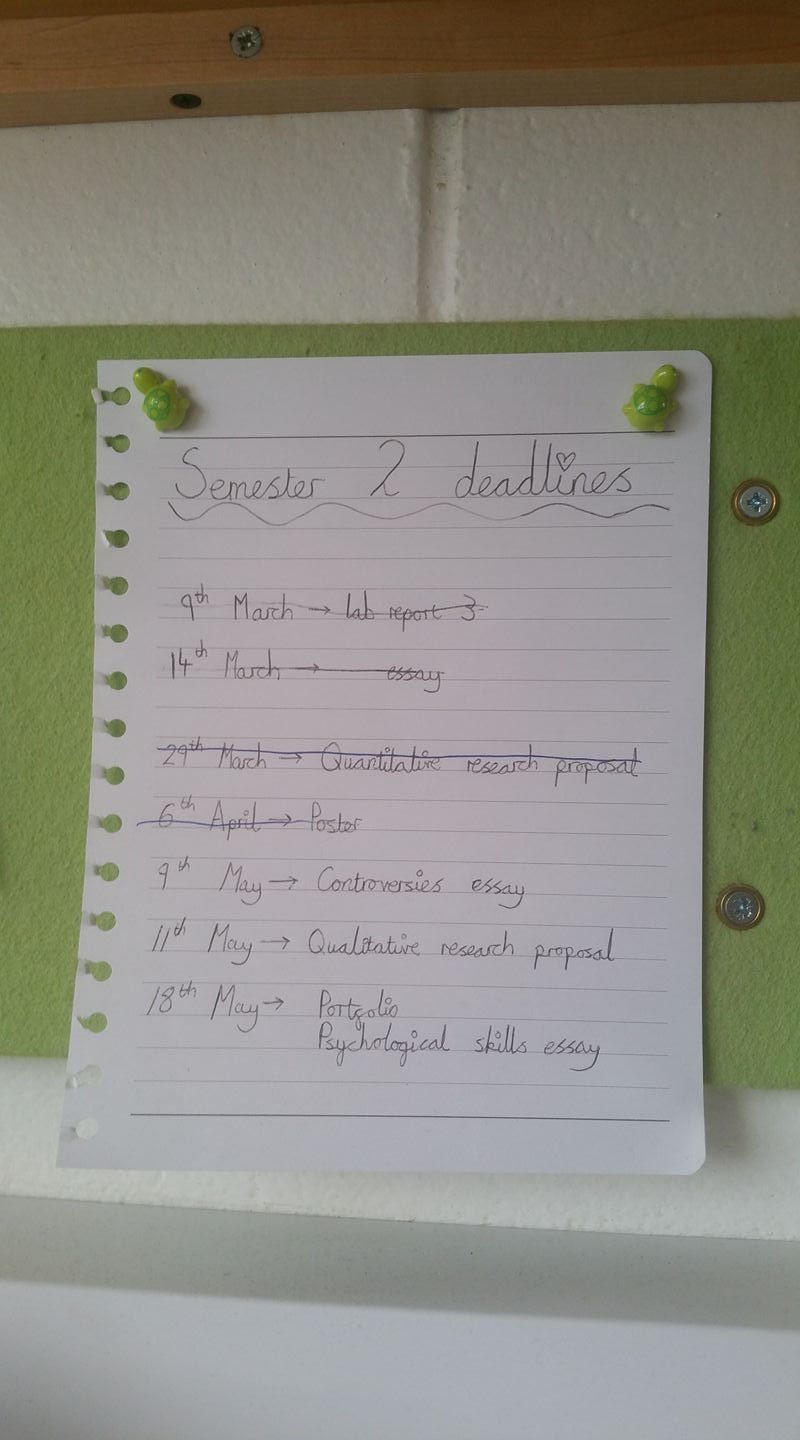 Semester 2 deadlines
9th March → lab report 3
14th March → essay
29th March → Quantitative research proposal
6th April → Poster
9th May → Controversies essay
11th May → Qualitative research proposal
18th May → Portfolio
Psychological skills essay